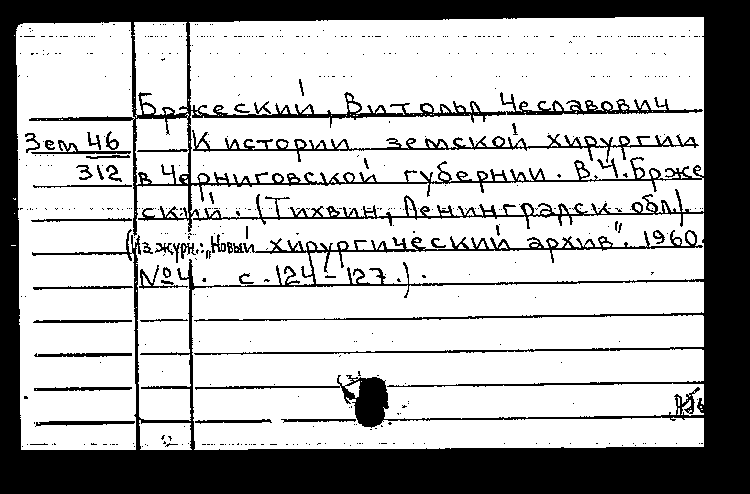 Бржеский, Витольд Чеславович
Зем 46 К истории земской хирургии
312 в Черниговской губернии. В.Ч. Брже
ский. (Тихвин, Ленинградск. обл.).
(Из журн.: „Новый хирургический архив". 1960.
№4. с. 124-127.).